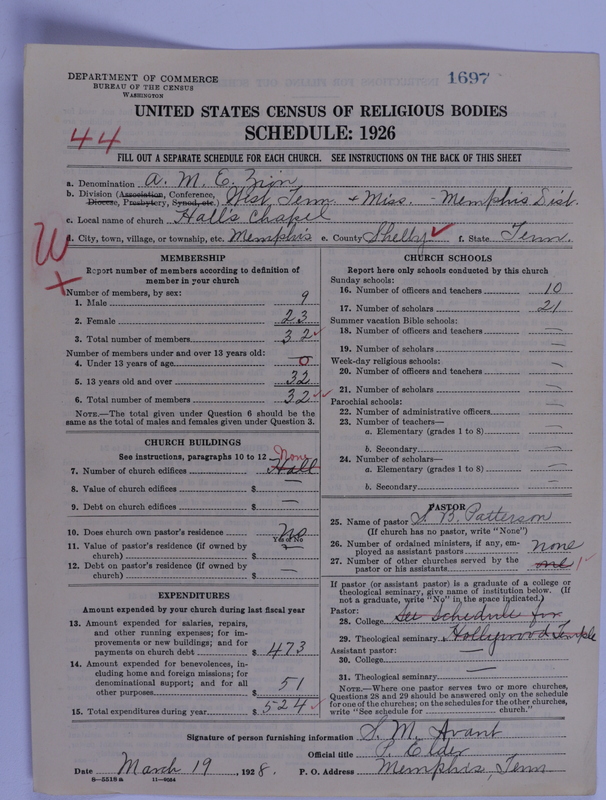 1697
DEPARTMENT OF COMMERCE
BUREAU OF THE CENSUS
WASHINGTON
UNITED STATES CENSUS OF RELIGIOUS BODIES
SCHEDULE: 1926
44
FILL OUT A SEPARATE SCHEDULE FOR EACH CHURCH. SEE INSTRUCTIONS ON THE BACK OF THIS SHEET
a. Denomination A. M. E. Zion
b. Division (Association, Conference, West Tenn. + Miss. - Memphis Dist.
Diocese, Presbytery, Synod, etc.)
c. Local name of church Hall's Chapel
d. City, town, village, or township, etc. Memphis e. County Shelby ✓ f. State Tenn.
W
+
MEMBERSHIP
Report number of members according to definition of
member in your church
Number of members, by sex:
1. Male 9
2. Female 23
3. Total number of members 32 ✓
Number of members under and over 13 years old:
4. Under 13 years of age 0
5. 13 years old and over 32
6. Total number of members 32 ✓✓
NOTE.—The total given under Question 6 should be
same as the total of males and females given under Question 3.
CHURCH BUILDINGS
See instructions, paragraphs 10 to 12 None
7. Number of church edifices Hall
8. Value of church edifices $ —
9. Debt on church edifices $ —
10. Does church own pastor's residence? No
Yes or No
11. Value of pastor's residence (if owned by
church) $ —
12. Debt on pastor's residence (if owned by
church) $ —
EXPENDITURES
Amount expended by your church during last fiscal year
13. Amount expended for salaries, repairs,
and other running expenses; for im-
provements or new buildings; and for
payments on church debt $ 473
14. Amount expended for benevolences, in-
cluding home and foreign missions; for
denominational support; and for all
other purposes $ 51
15. Total expenditures during year $ 524 ✓
CHURCH SCHOOLS
Report here only schools conducted by this church
Sunday schools:
16. Number of officers and teachers 10
17. Number of scholars 21
Summer vacation Bible schools:
18. Number of officers and teachers —
19. Number of scholars —
Week-day religious schools:
20. Number of officers and teachers —
21. Number of scholars —
Parochial schools:
22. Number of administrative officers —
23. Number of teachers—
a. Elementary (grades 1 to 8) —
b. Secondary —
24. Number of scholars—
a. Elementary (grades 1 to 8) —
b. Secondary —
PASTOR
25. Name of pastor S. B. Patterson
(If church has no pastor, write "None")
26. Number of ordained ministers, if any, em-
ployed as assistant pastors none
27. Number of other churches served by the
pastor or his assistants one 1 ✓
If pastor (or assistant pastor) is a graduate of a college or
theological seminary, give name of institution below. (If
not a graduate, write "No" in the space indicated.)
Pastor:
28. College See Schedule for
29. Theological seminary Hollywood Temple
Assistant pastor:
30. College —
31. Theological seminary —
NOTE.—Where one pastor serves two or more churches,
Questions 28 and 29 should be answered only on the schedule
for one of the churches; on the schedules for the other churches,
write "See schedule for church."
Signature of person furnishing information S. M. Avant
Official title P. Elder
Date March 19, 1928. P. O. Address Memphis, Tenn
8—5518a 11—9054